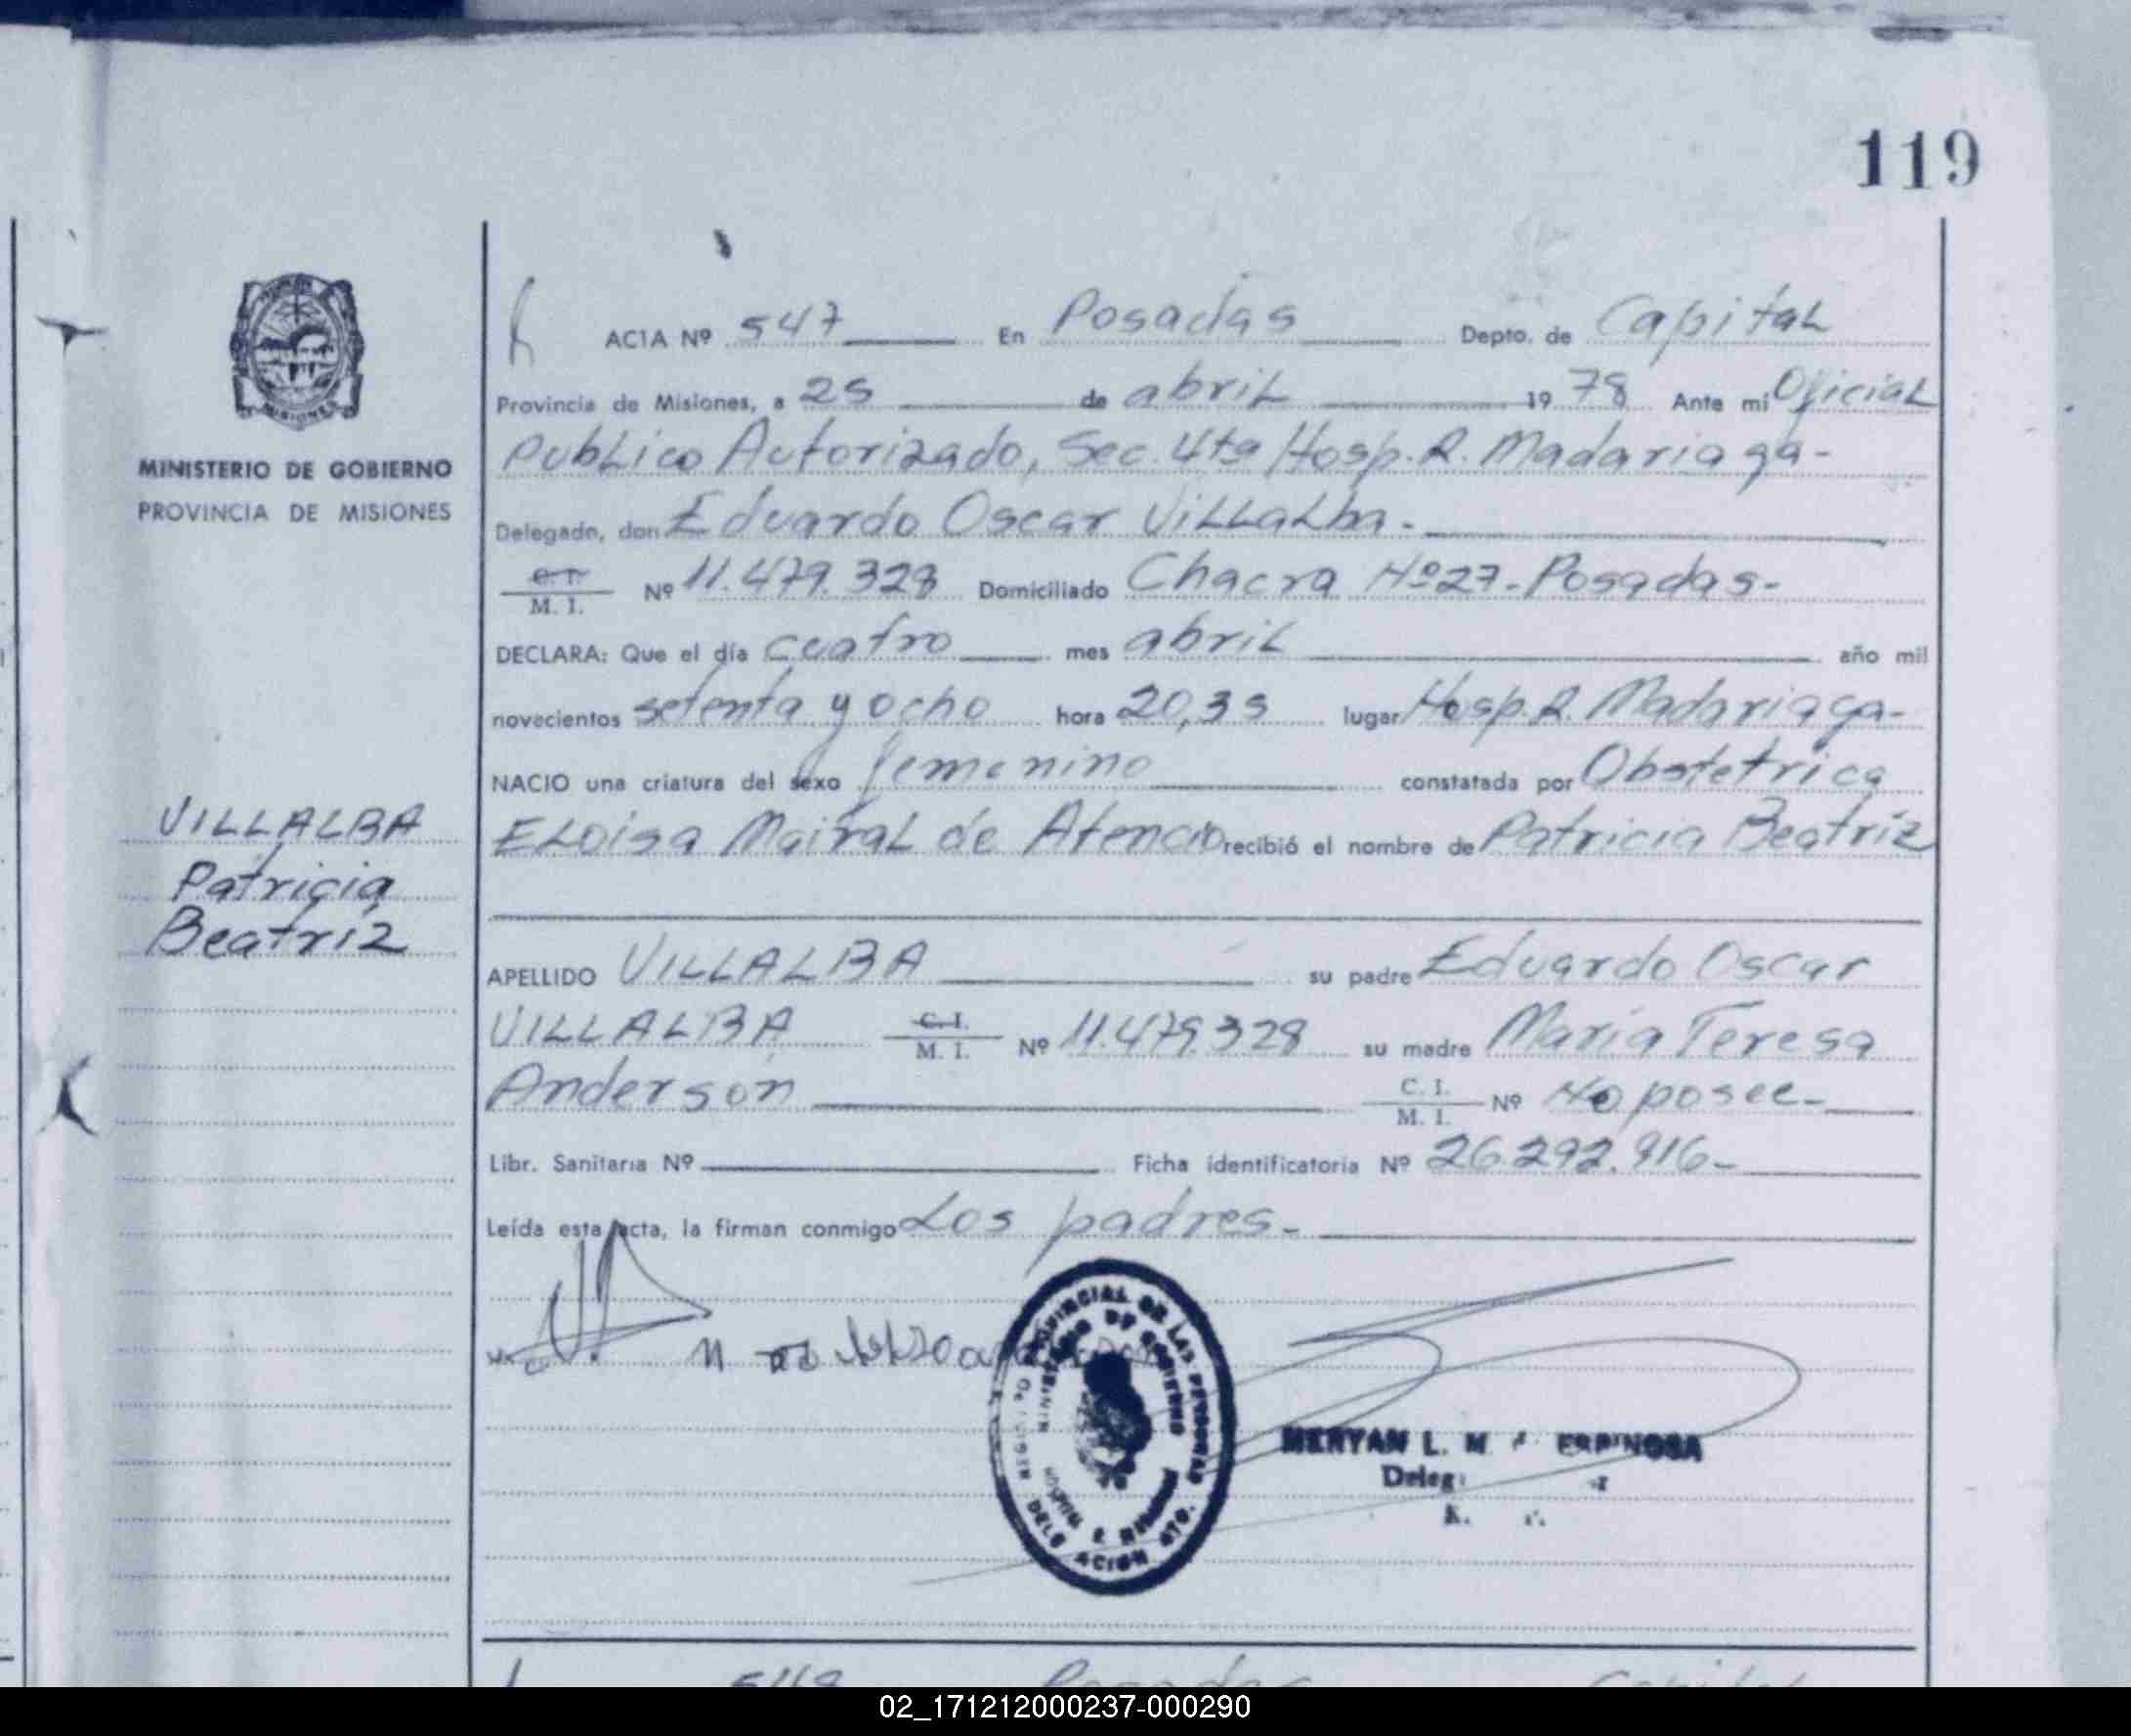 119
MISIONES
MINISTERIO DE GOBIERNO
PROVINCIA DE MISIONES
VILLALBA
Patricia
Beatriz
ACTA Nº 547 En Posadas Depto. de Capital
Provincia de Misiones, a 25 de abril 1978 Ante mi Oficial
Publico Autorizado, Sec. 4ta Hosp. R. Madariaga-
Delegado, don Eduardo Oscar Villalba.
C.I. M. I. Nº 11.479.328 Domiciliado Chacra Nº27-Posadas-
DECLARA: Que el día cuatro mes abril año mil
novecientos setenta y ocho hora 20,35 lugar Hosp. R. Madariaga-
NACIO una criatura del sexo femenino constatada por Obstetrica
Eloisa Mairal de Atencio recibió el nombre de Patricia Beatriz
APELLIDO VILLALBA su padre Eduardo Oscar
VILLALBA C.I. M. I. Nº 11.479.328 su madre Maria Teresa
Anderson C. I. M. I. Nº No posee-
Libr. Sanitaria Nº Ficha identificatoria Nº 26.292.916-
Leída esta acta, la firman conmigo Los padres-
PROVINCIAL DE LAS PERSONAS
MINISTERIO DE GOBIERNO
MERYAN L. M. ESPINOSA
547 Posadas Capital
02_171212000237-000290